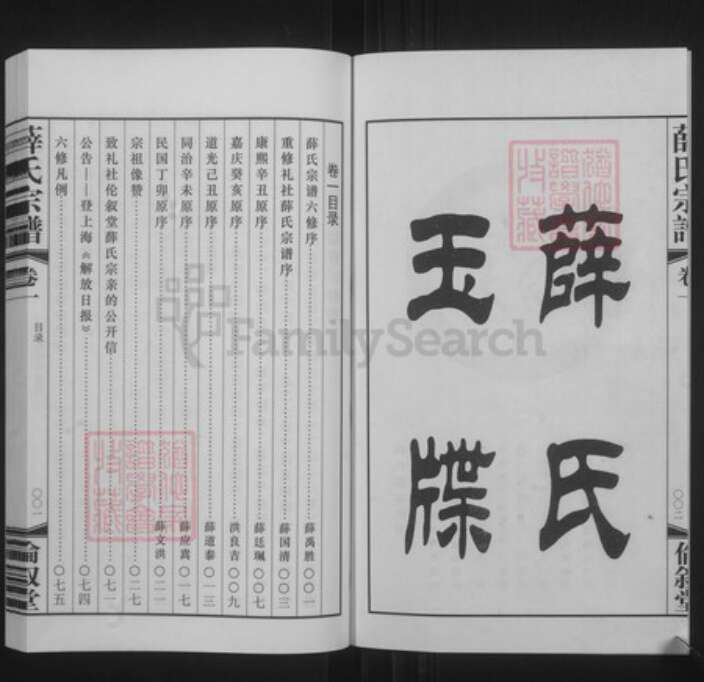 薛氏
玉牒
薛氏宗譜
卷一
倫敘堂
卷一目录
薛氏宗谱六修序……薛禹胜 〇〇一
重修礼社薛氏宗谱序……薛国清 〇〇三
康熙辛丑原序……薛廷珮 〇〇七
嘉庆癸亥原序……洪良吉 〇〇九
道光己丑原序……薛道泰 〇一三
同治辛未原序……薛应嵩 〇一七
民国丁卯原序……薛文洪 〇二一
宗祖像赞……〇二七
致礼社伦叙堂薛氏宗亲的公开信……〇七一
公告——登上海《解放日报》……〇七四
六修凡例……〇七五
薛氏宗譜
卷一
目录
〇〇一
倫敘堂
FamilySearch